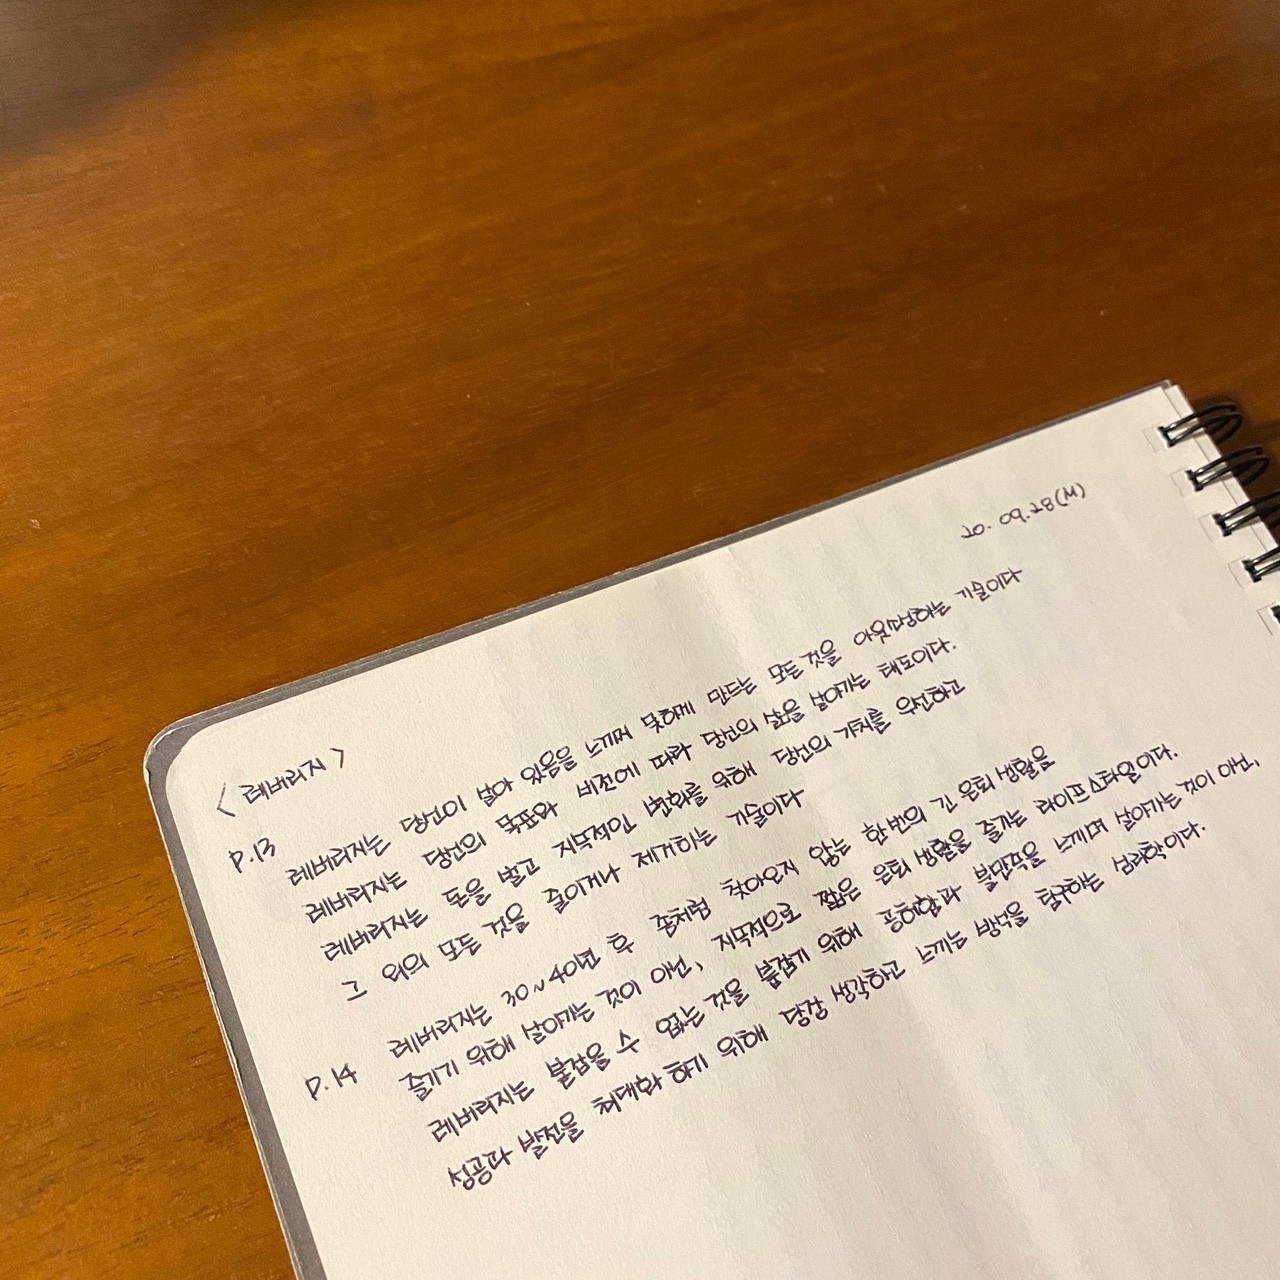 20. 09. 28(M)
< 레버리지 >
P.13
레버리지는 당신이 살아 있음을 느끼며 못하게 만드는 모든 것을 아웃소싱하는 기술이다
레버리지는 당신의 목표와 비전에 따라 당신의 삶을 살아가는 태도이다.
레버리지는 돈을 벌고 지속적인 변화를 위해 당신의 가치를 우선하고
그 외의 모든 것을 줄이거나 제거하는 기술이다
P.14
레버리지는 30~40년 후 좀처럼 찾아오지 않는 한 번의 긴 은퇴 생활을
즐기기 위해 살아가는 것이 아닌, 지속적으로 짧은 은퇴 생활을 즐기는 라이프스타일이다.
레버리지는 붙잡을 수 없는 것을 붙잡기 위해 공허함과 불만족을 느끼며 살아가는 것이 아닌,
성공과 발전을 최대화 하기 위해 당장 생각하고 느끼는 방식을 탐구하는 심리학이다.